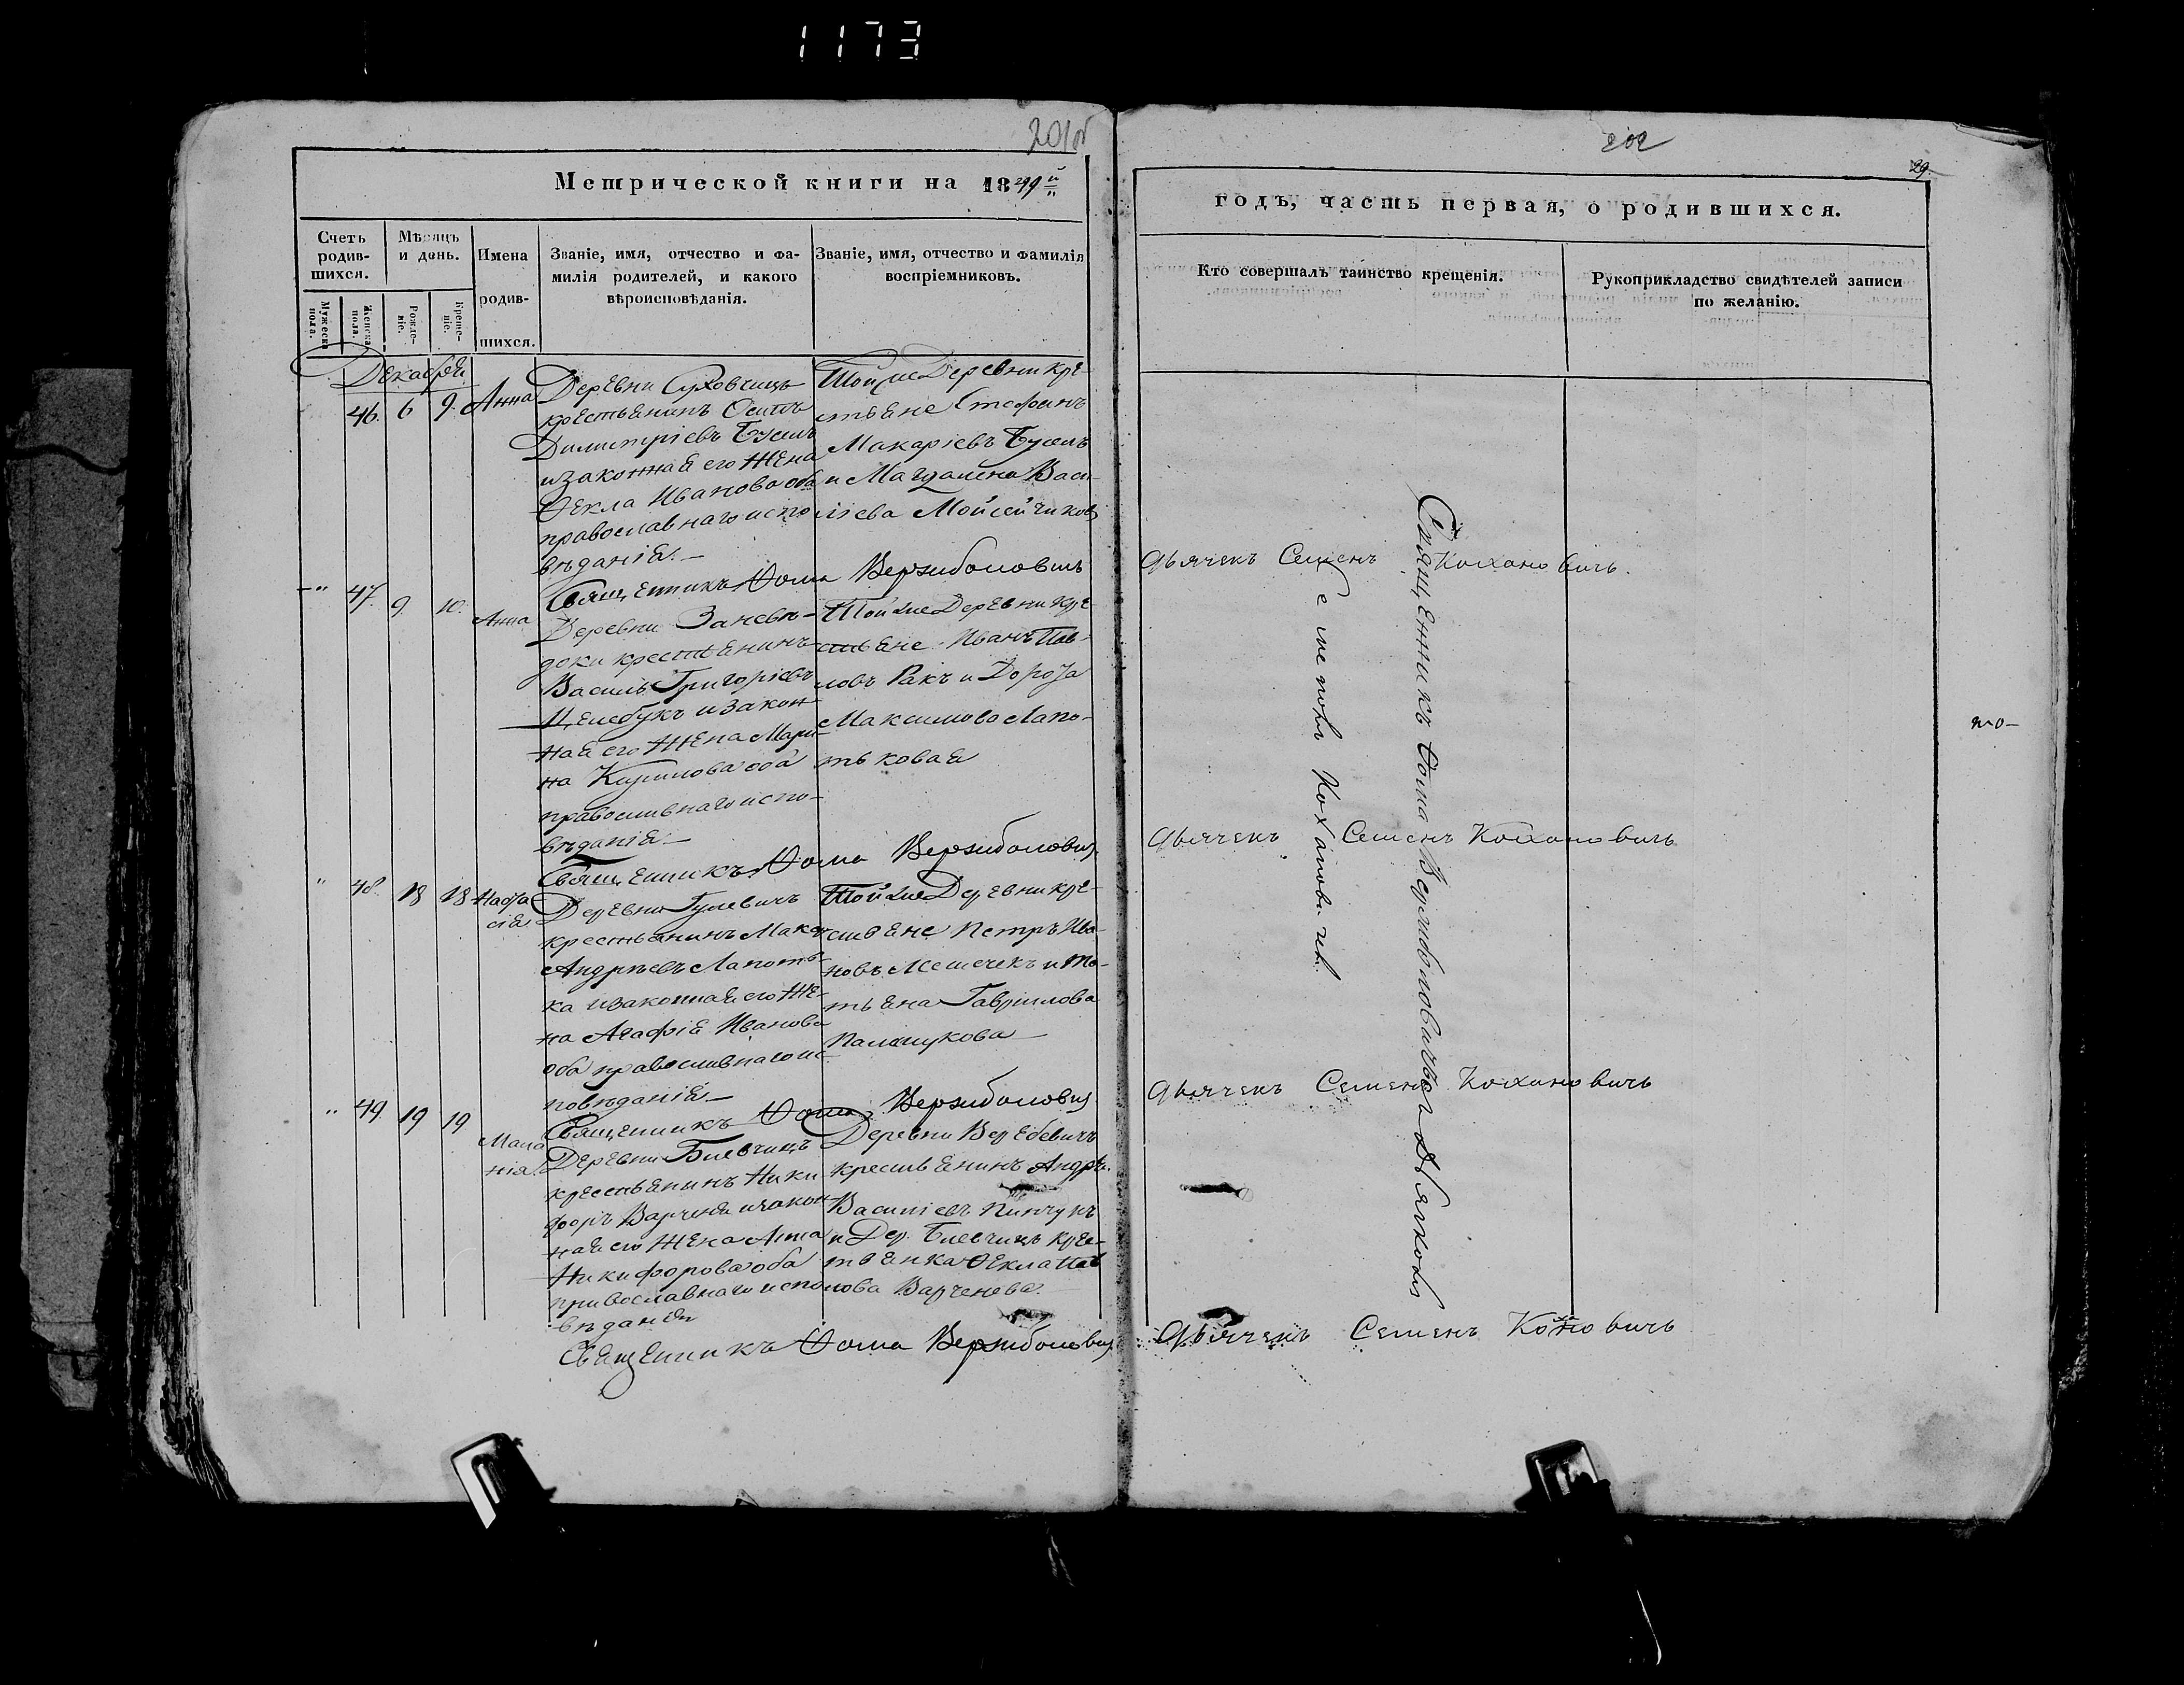 1173
202
29.
Метрической книги на 1849й
годъ, часть первая, о родившихся.
Счетъ родив-шихся.
Мѣсяцъ и день.
Имена родив-шихся.
Званіе, имя, отчество и фа-
милія родителей, и какого
вѣроисповѣданія.
Званіе, имя, отчество и фамилія
воспріемниковъ.
Кто совершалъ таинство крещенія.
Рукоприкладство свидѣтелей записи
по желанію.
Мужеска пола.
Женска пола.
Рожде-ніе.
Креще-ніе.
Декабря
46. 6 9. Анна
Деревни Суховчицъ
крестьянинъ Осипъ
Димитріевъ Буселъ
и законная его жена
Ѳекла Иванова оба
православнаго испо
вѣданія. —
Той же Деревни кре-
стьяне Стефанъ
Макаріевъ Буселъ
и Магдалена Васи-
ліева Мойсейчикова
Священникъ Ѳома Вержиболовичъ
Дьячекъ Семенъ Кохановичъ.
" 47. 9. 10. Анна
Деревни Заневѣ-
доки крестьянинъ
Василь Григоріевъ
Целебукъ и закон
ная его жена Мари-
на Кирилова оба
православнаго испо-
вѣданія —
Той же Деревни кре-
стьяне Иванъ Пав-
ловъ Ракъ и Дорофа
Максимова Лапо-
тьковая
Священникъ Ѳома Вержиболовичъ
Дьячекъ Семенъ Кохановичъ
" 48. 18 18 Настасія
Деревни Гулевичъ
крестьянинъ Макар
Андреевъ Лапоть-
ка и законная его же-
на Агафія Иванова
оба православнаго ис-
повѣданія —
Той же Деревни кре-
стьяне Петръ Ива-
новъ Мешечекъ и Та-
тьяна Гаврилова
Палашукова —
Священникъ Ѳома Вержиболовичъ
Дьячекъ Семенъ Кохановичъ
" 49. 19 19 Маланія
Деревни Блевчицъ
крестьянинъ Ники
форъ Варченя и закон
ная его жена Анна
Никифорова оба
православнаго испо
вѣданія
Деревни Веребевичъ
крестьянинъ Андрей
Василіевъ Пинчукъ
и Дер. Блевчицъ крес-
тьянка Ѳекла Пав
лова Варченева.
Священникъ Ѳома Вержиболовичъ
Дьячекъ Семенъ Кохновичъ
Священникъ Ѳома Вержиболовичъ
Семеномъ Кохановичемъ